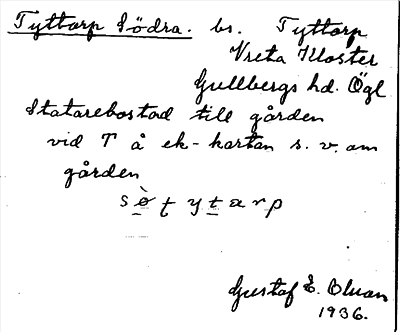 Tyttorp Södra. bs. Tyttorp
Vreta Kloster
Gullbergs hd. Ögl
Statarebostad till gården
vid T å ek-kartan s.v. om
gården
sø̀t̨ytarp
Gustaf E. Olson
1936.